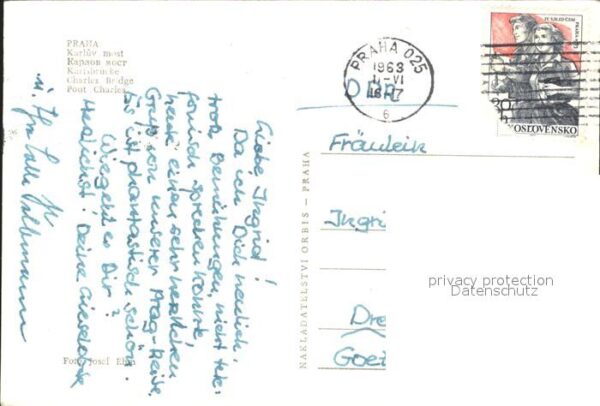 PRAHA
Karlův most
Карлов мост
Karlsbrücke
Charles Bridge
Pont Charles
Liebe Ingrid!
Da ich Dich neulich,
trotz Bemühungen, nicht tele-
fonisch sprechen konnte,
heute einen sehr herzlichen
Gruß von unserer Prag-Reise.
Es ist phantastisch schön.
Wie geht es Dir?
Herzlichst! Deine
Foto Josef Ehm
NAKLADATELSTVÍ ORBIS - PRAHA
PRAHA 025
1963
6
ČESKOSLOVENSKO
DDR
Fräulein
Ingri
Dre
Goe
privacy protection
Datenschutz